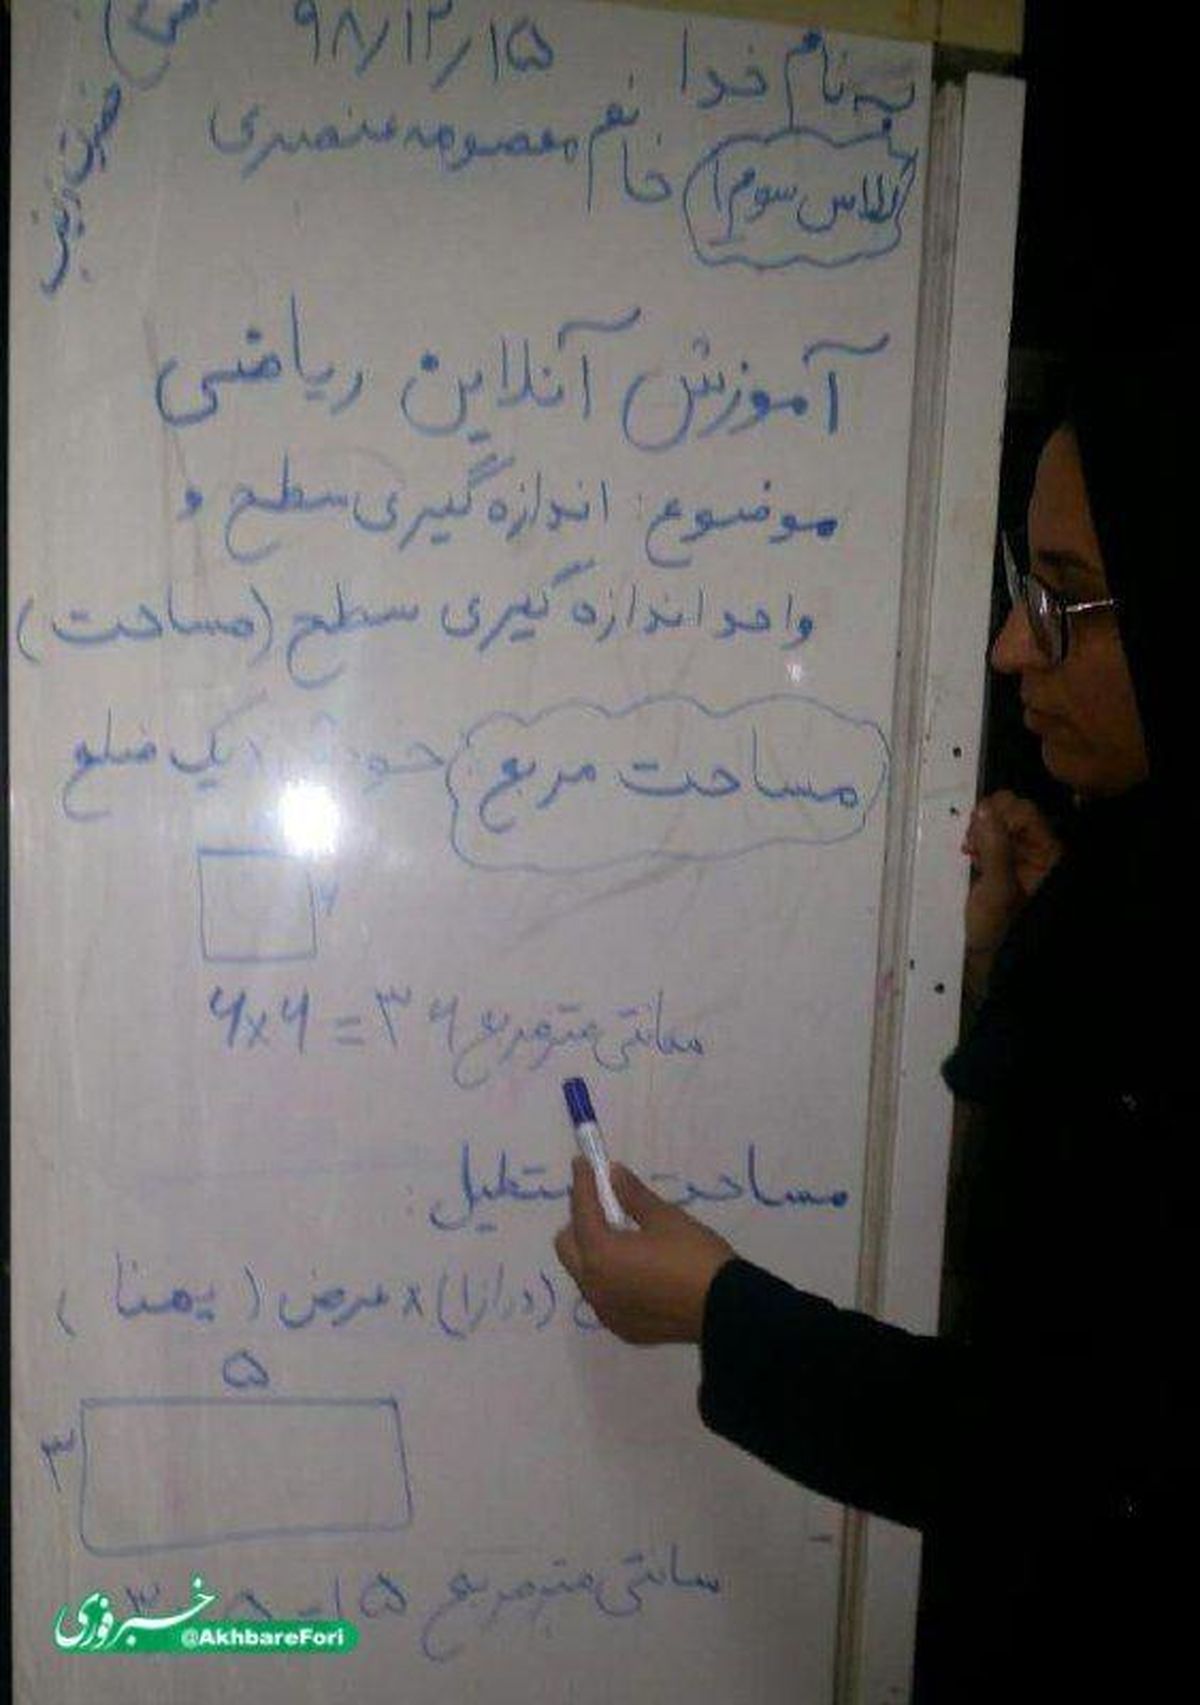 به نام خدا ۹۸/۱۲/۱۵
کلاس سوم ۱ خانم معصومه عنصری
آموزش آنلاین ریاضی
موضوع: اندازه گیری سطح و
واحد اندازه گیری سطح (مساحت)
مساحت مربع خودش یک ضلع
۶
۶×۶=۳۶ سانتی متر مربع
مساحت مستطیل:
(درازا) × عرض (پهنا)
۵
۳
۱۵ سانتی متر مربع
خبرفوری
@AkhbareFori